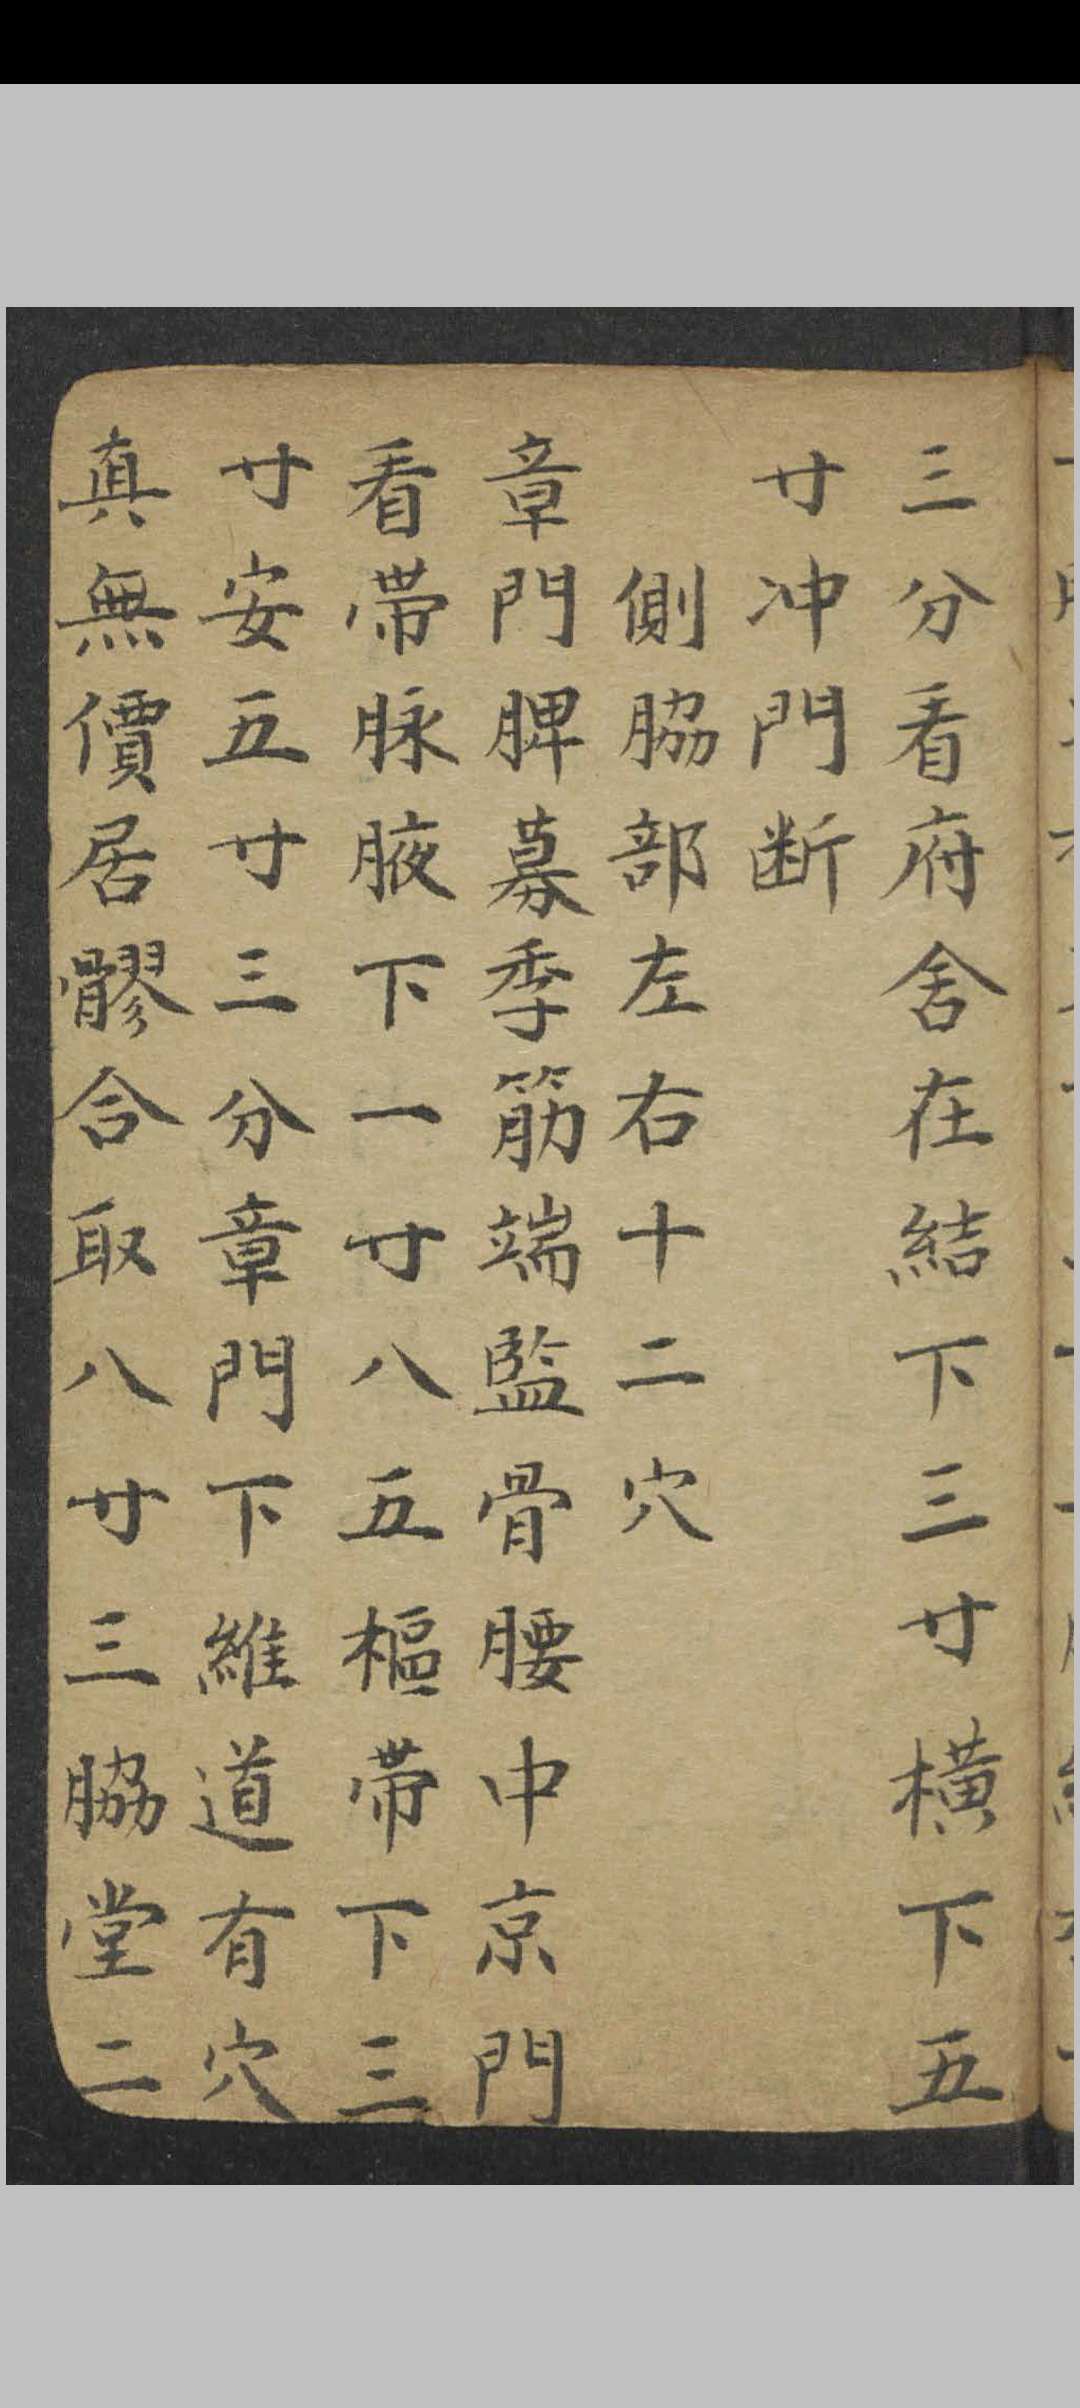 三分看府舍在結下三寸橫下五
寸冲門断
側脇部左右十二穴
章門脾募季筋端監骨腰中京門
看帶脉腋下一寸八五樞帶下三
寸安五寸三分章門下維道有穴
真無價居髎合取八寸三脇堂二